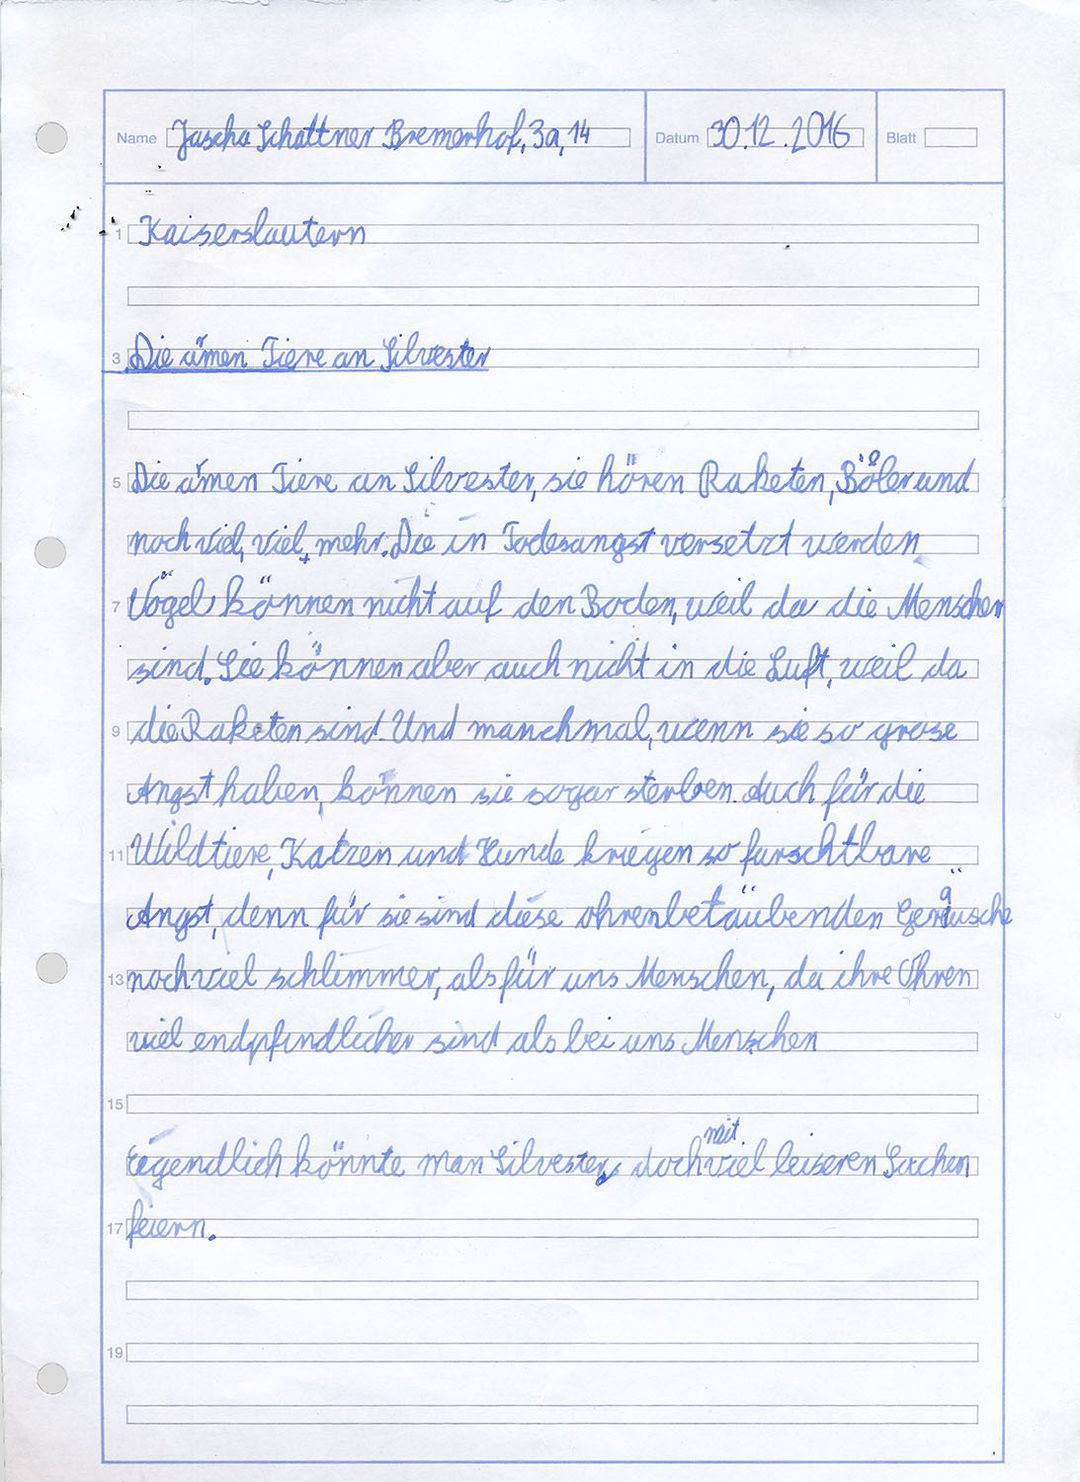 Name Jascha Schattner Bremerhof, 3a, 14 Datum 30.12.2016 Blatt
1 Kaiserslautern
3 Die ämen Tiere an Silvester
5 Die ämen Tiere an Silvester, sie hören Raketen, Böler und
noch viel, viel, mehr. Die in Todesangst versetzt werden
7 Vögel können nicht auf den Boden, weil da die Menschen
sind. Sie können aber auch nicht in die Luft, weil da
9 die Raketen sind. Und manchmal, wenn sie so grose
Angst haben, können sie sogar sterben. Auch für die
11 Wildtiere, Katzen und Hunde kriegen so furschtbare
Angst, denn für sie sind diese ohrenbetäubenden Geräusche
13 noch viel schlimmer, als für uns Menschen, da ihre Ohren
viel endpfindlicher sind als bei uns Menschen
15
Eigendlich könnte man Silvester doch mit viel leiseren Sachen
17 feiern.
19